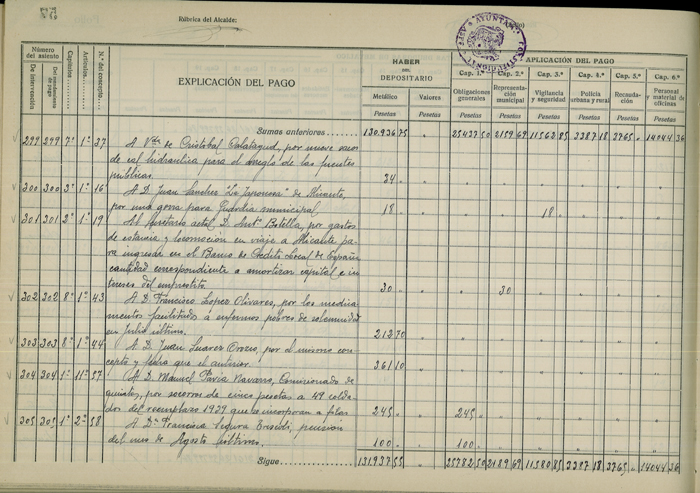 57
Rúbrica del Alcalde:
AYUNTAMIENTO CONSTITUCIONAL
Número del asiento
De Intervención
Del mandamiento de pago
Capítulos
Artículos
N.º del concepto
EXPLICACIÓN DEL PAGO
HABER DEL DEPOSITARIO
Metálico
Valores
Pesetas
Pesetas
APLICACIÓN DEL PAGO
Cap. 1.º Cap. 2.º Cap. 3.º Cap. 4.º Cap. 5.º Cap. 6.º
Obligaciones generales
Representación municipal
Vigilancia y seguridad
Policía urbana y rural
Recaudación
Personal y material de oficinas
Pesetas Pesetas Pesetas Pesetas Pesetas Pesetas
Sumas anteriores 130.936 75 " 25437 50 2159 69 11562 85 3387 18 3765 " 14044 36
299 299 7º 1º 37 A Vda de Cristobal Calatayud, por nueve sacos
de cal hidraulica para el arreglo de las fuentes
publicas. 34 "
300 300 3º 1º 16 A D. Juan Sanchez "La Japonesa" de Alicante,
por una gorra para Guardia municipal, 18 " 18 "
301 301 2º 1º 19 Al Secretario actal D. Antº Botella, por gastos
de estancia y locomoción en viaje a Alicante pa-
ra ingresar en el Banco de Crédito Local de España
cantidad correspondiente a amortizar capital e in-
tereses del emprestito. 30 " 30
302 302 8º 1º 43 A D. Francisco Lopez Olivares, por los medica-
mentos facilitados á enfermos pobres de solemnidad
en julio ultimo. 212 70
303 303 8º 1º 44 A D. Juan Suarez Orozco, por el mismo con-
cepto y fecha que el anterior. 361 10
304 304 1º 11º 57 A D. Manuel Navarro, Comisionado de
quintas, por socorros de cinco pesetas a 49 solda-
dos del reemplazo 1929 que se incorporan a filas 245 " 245 "
305 305 1º 2º 58 A Dª Francisca Segura, pension
del mes de Agosto ultimo. 100 " 100 "
Sigue 131937 55 " 25782 50 2189 69 11580 85 3387 18 3765 " 14044 36